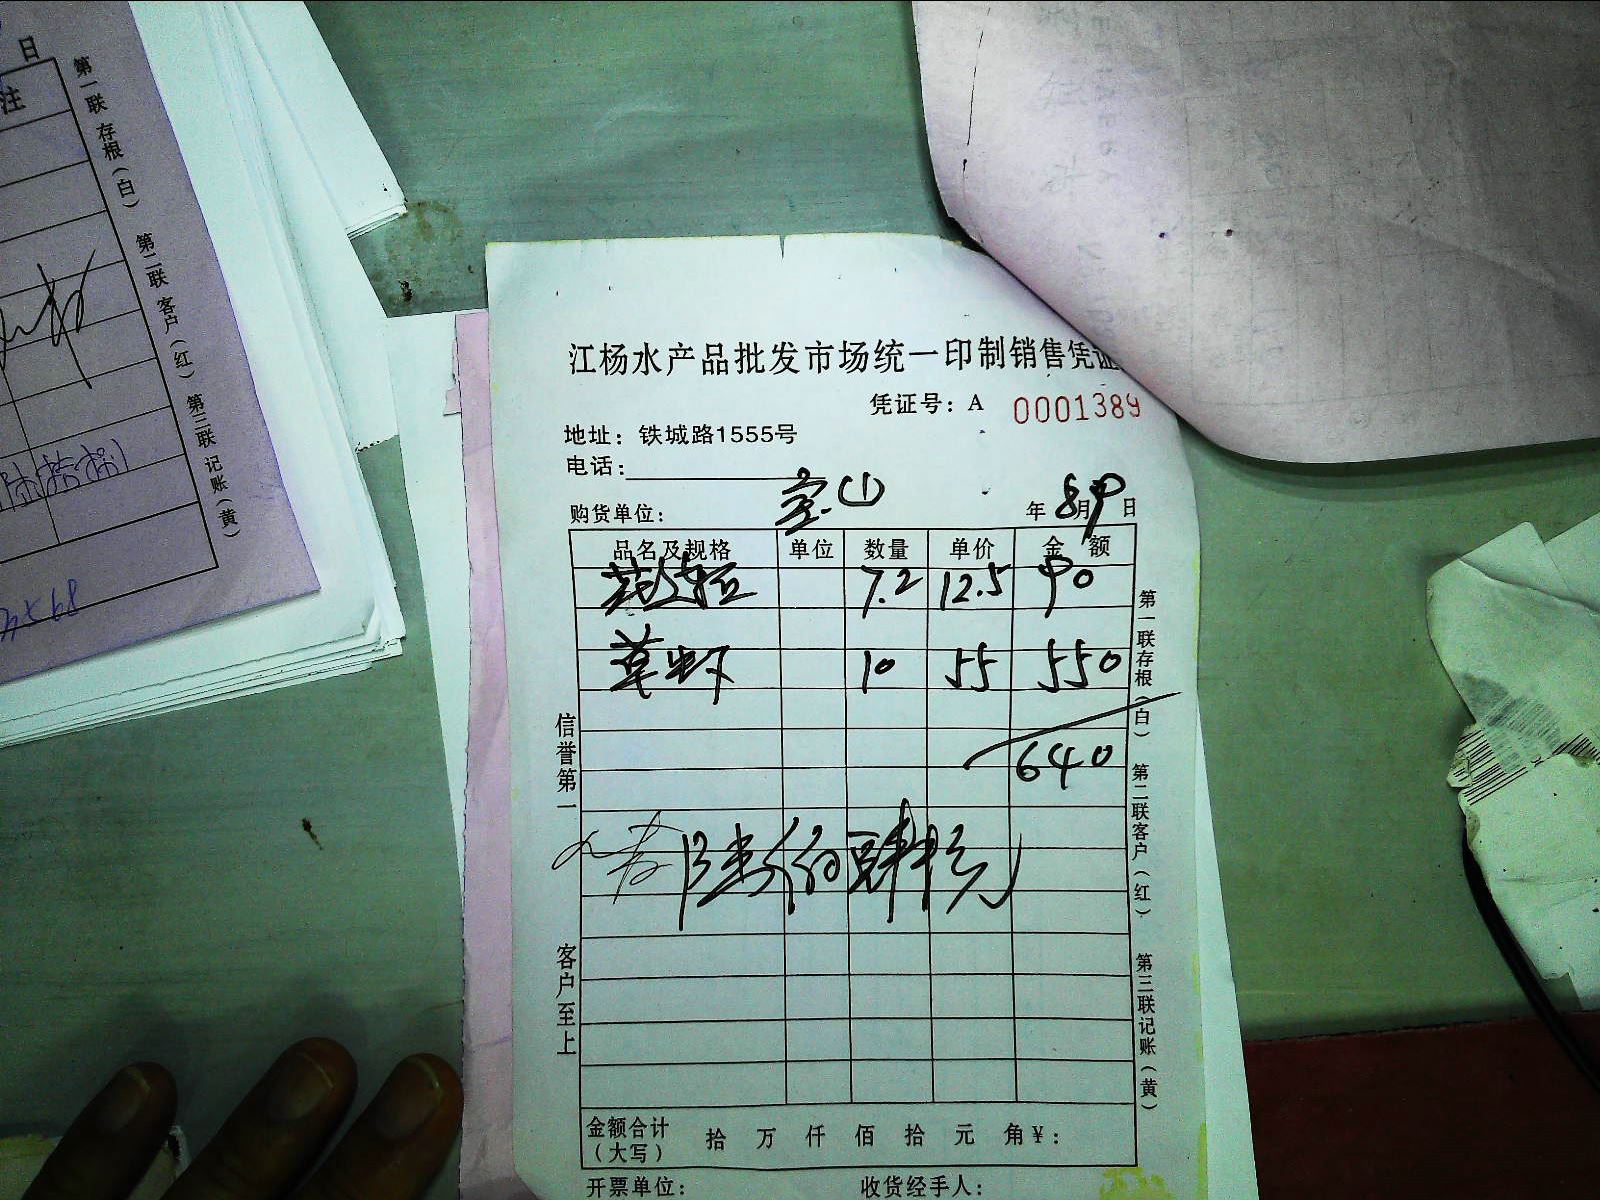 日
注
第一联 存根（白） 第二联 客户（红） 第三联 记账（黄）
江杨水产品批发市场统一印制销售凭证
凭证号：A 0001389
地址：铁城路1555号
电话：
购货单位： 宝山 年 8月9日
品名及规格 单位 数量 单价 金额
7.2 12.5 90
草虾 10 55 550
640
陆佰肆拾元
信誉第一
客户至上
第一联存根（白） 第二联客户（红） 第三联记账（黄）
金额合计 拾 万 仟 佰 拾 元 角¥：
（大写）
开票单位： 收货经手人：